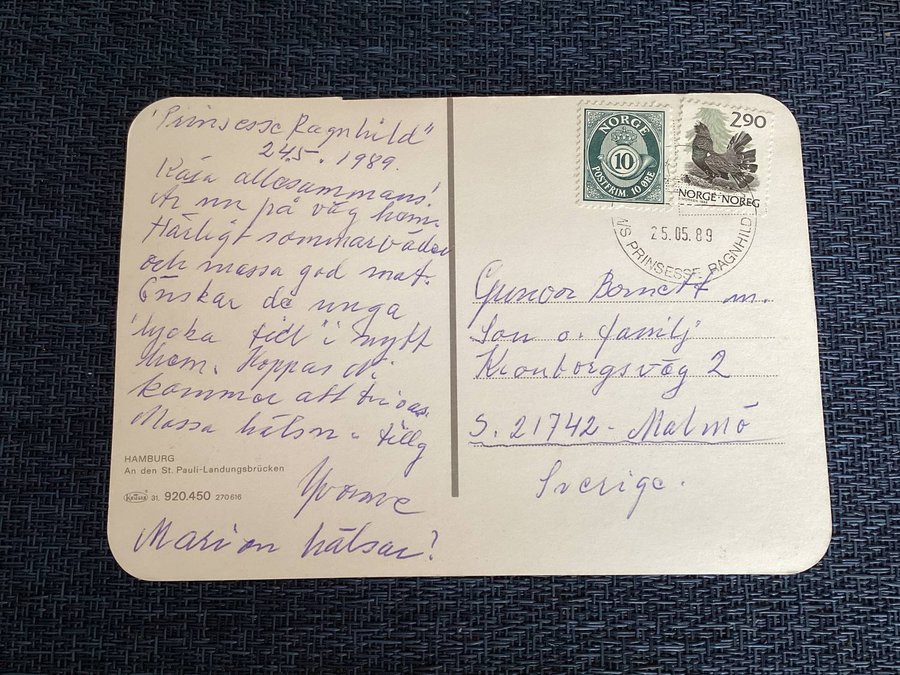 "Prinsesse Ragnhild"
24.5.1989
Kära allesammans!
Är nu på väg hem.
Härligt sommarväder
och massa god mat.
Önskar de unga
"lycka till" i nytt
hem. Hoppas ni
kommer att trivas.
Massa hälsn.
Yvonne
Marion hälsar!
HAMBURG
An den St. Pauli-Landungsbrücken
Krüger 31 920.450 270616
NORGE
10
POSTFRIM. 10 ØRE
290
NORGE·NOREG
25.05.89
M/S PRINSESSE RAGNHILD
Gunvor m.
Son o. familj
Kronborgsväg 2
S. 21742 - Malmö
Sverige.